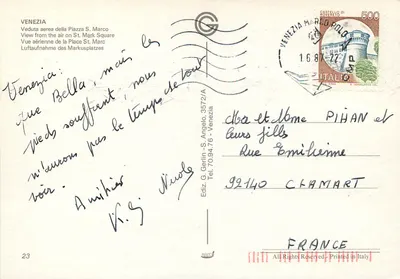 VENEZIA
Veduta aerea della Piazza S. Marco
View from the air on St. Mark Square
Vue aérienne de la Place St. Marc
Luftaufnahme des Markusplatzes
Venezia:
que Bella, mais les
pieds souffrant, nous
n'aurons pas le temps de tout
voir.
Amitiés
23
Ediz. G. Gerlin - S. Angelo, 3572/A
Tel. 70.94.76 - Venezia
VENEZIA MARCO POLO
500
ITALIA
Ma et Mme PIHAN et
leurs filles
Rue Emilienne
92140 CLAMART
FRANCE
All Rights Reserved - Printed in Italy